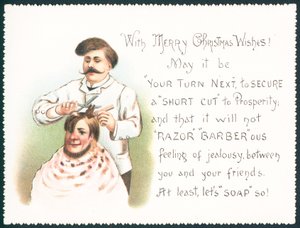 With MERRY CHRISTMAS WISHES!
May it be
"YOUR TURN NEXT, to SECURE
a "SHORT CUT" to Prosperity;
and that it will not
"RAZOR" "BARBER"ous
feeling of jealousy, between
you and your friends.
At least, let's "SOAP" so!